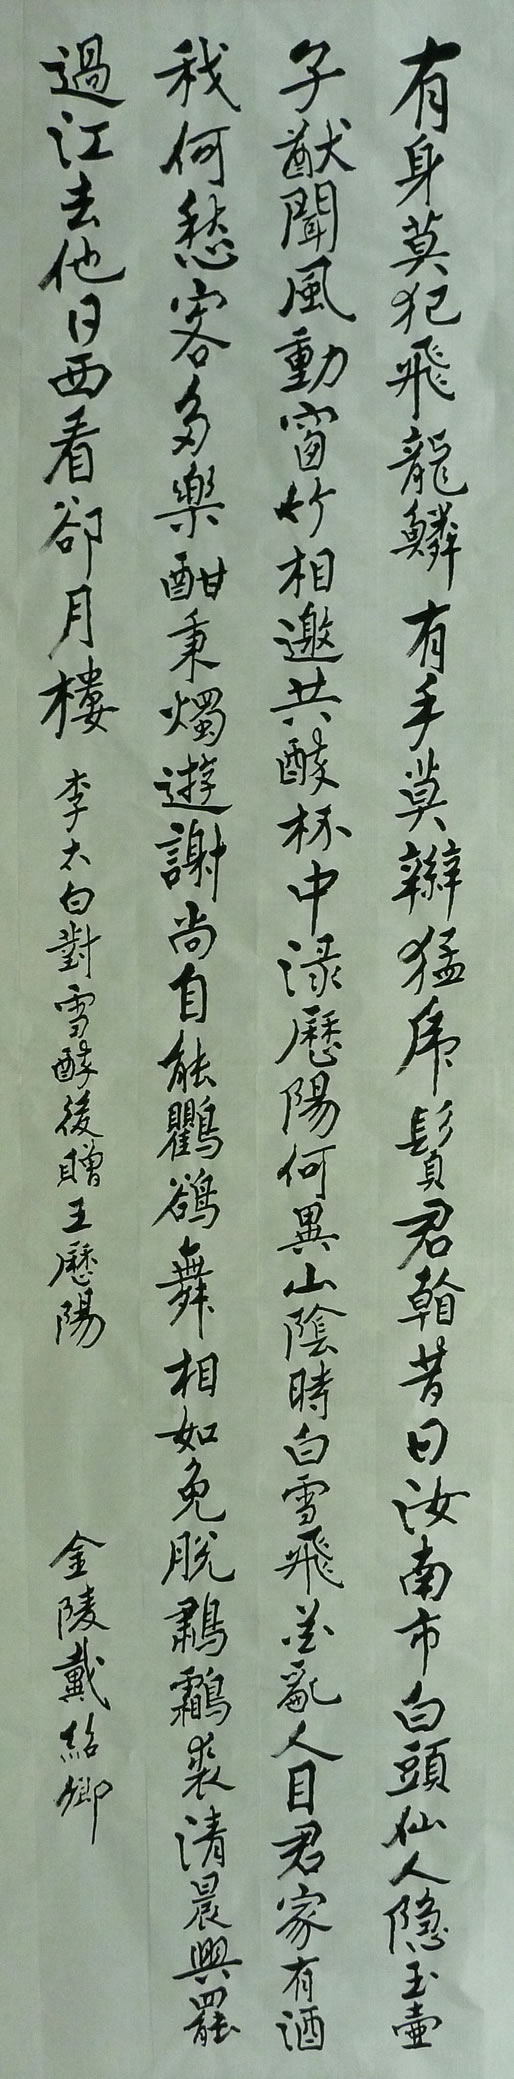 有身莫犯飛龍鱗有手莫辮猛虎鬚君看昔日汝南市白頭仙人隐玉壷
子猷聞風動窗竹相邀共醉杯中渌歷陽何異山陰時白雪飛花亂人目君家有酒
我何愁客多樂酣秉燭遊謝尚自能鸜鵒舞相如免脫鷫鸘裘清晨興罷
過江去他日西看卻月樓
李太白對雪醉後贈王歷陽
金陵戴紹卿